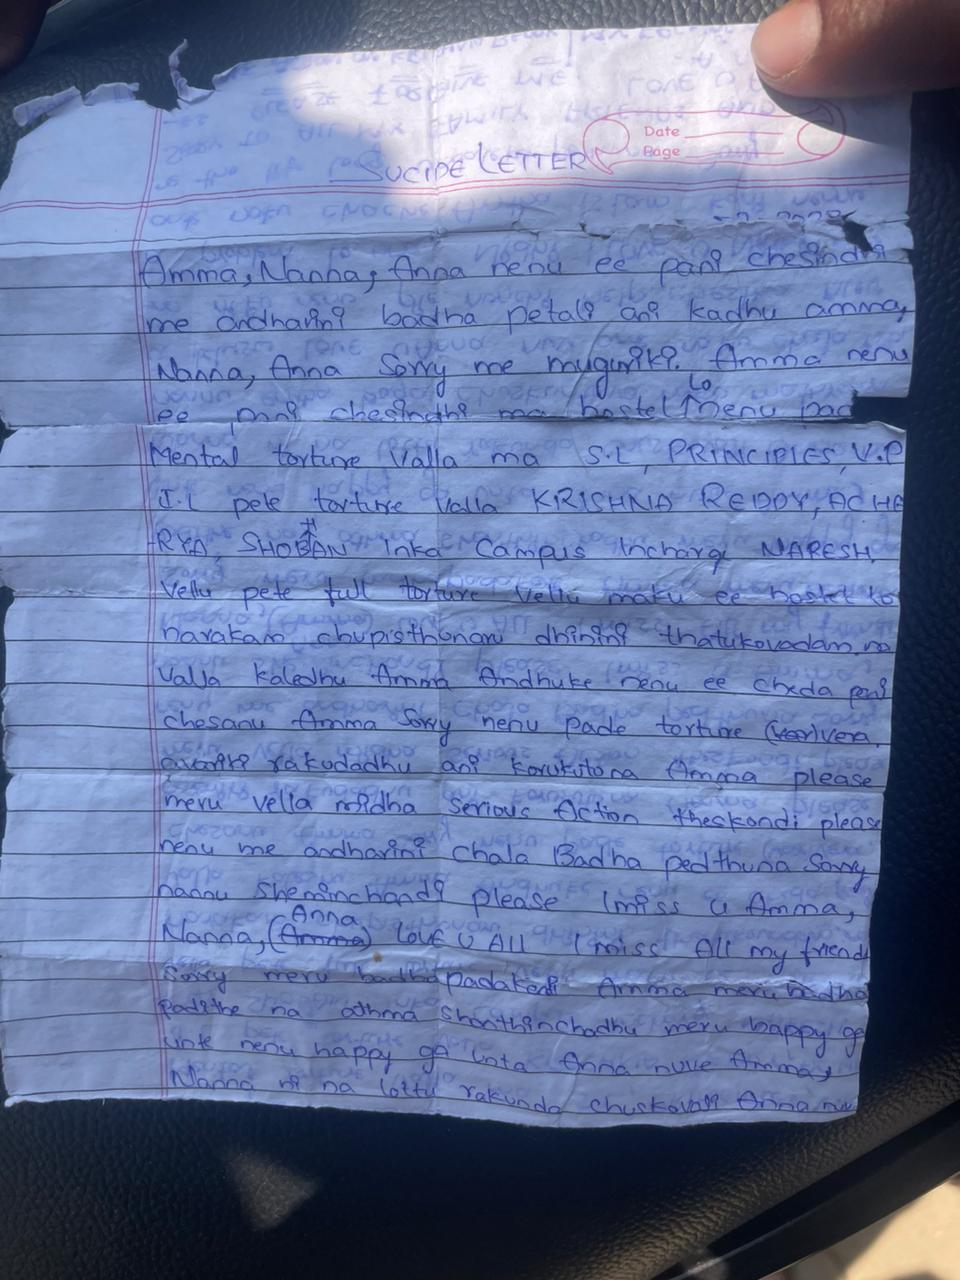 Date
Page
SUCIDE LETTER
Amma, Nanna, Anna nenu ee pani chesindhi
me andharini badha petali ani kadhu amma,
Nanna, Anna Sorry me muguriki. Amma nenu
ee pani chesindhi ma hostel lo nenu pade
Mental torture Valla ma S.L, PRINCIPLES, V.P
J.L pete torture valla KRISHNA REDDY, ACHE
RYA, SHOBAN inka Campus Incharg NARESH.
Vellu pete full torture Vellu maku ee hostel lo
narakam chupisthunaru dhinini thatukovadam, na
valla kaledhu Amma Andhuke nenu ee cheda pani
chesanu Amma Sorry nenu pade torture vera
rakudadhu ani korukutona Amma please
meru vella midha serious Action theskondi please
nenu me andharini chala Badha pedthuna Sorry
nannu sheminchandi please I miss u Amma,
Nanna, (Amma) Anna LOVE U All I miss All my friends
Sorry meru badha padakendi Amma meru badha
padithe na athma shanthinchadhu meru happy ga
unte nenu happy ga unta Anna nuve Amma,
Nanna ni na lottu rakunda chuskovali Anna nuv